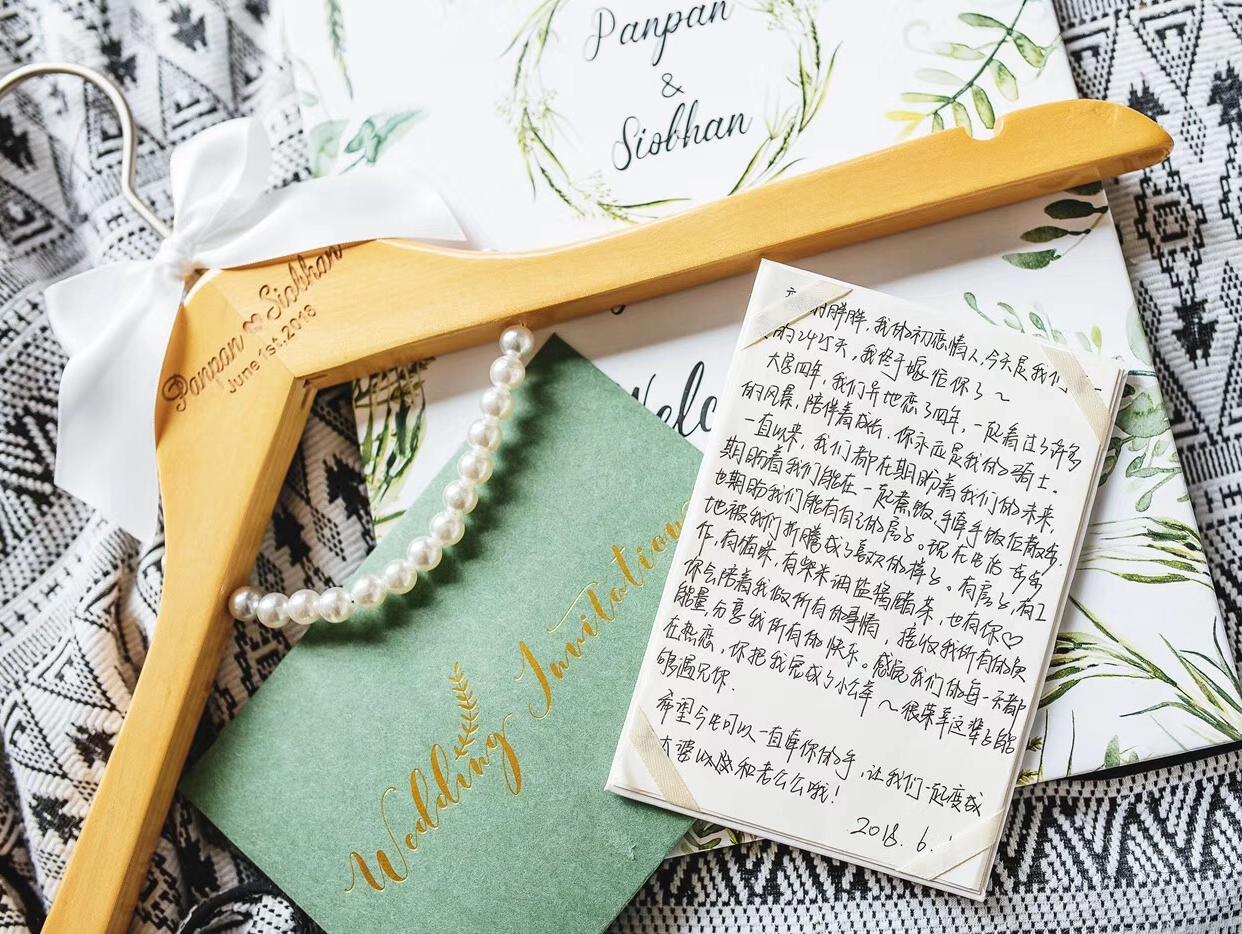 Panpan
&
Siobhan
Panpan ♡ Siobhan
June 1st. 2018
Welc
Wedding Invitation
胖胖，我的初恋情人，今天是我们
的2425天，我终于嫁给你了～
大学四年，我们异地恋了四年，一起看过了许多
的风景，陪伴着成长，你永远是我的骑士。
一直以来，我们都在期盼着我们的未来，
期盼着我们能在一起煮饭，手牵手饭后散步，
也期盼我们能有自己的房子。现在生活
地被我们折腾成了喜欢的样子。有房子，有工
作，有猫咪，有柴米油盐酱醋茶，也有你♡
你会陪着我做所有的事情，接收我所有的负
能量，分享我所有的快乐。感觉我们的每一天都
在热恋，你把我宠成了小公举～很荣幸这辈子能
够遇见你.
希望今生可以一直牵你的手，让我们一起变成
老公公哦！
2018. 6. 1